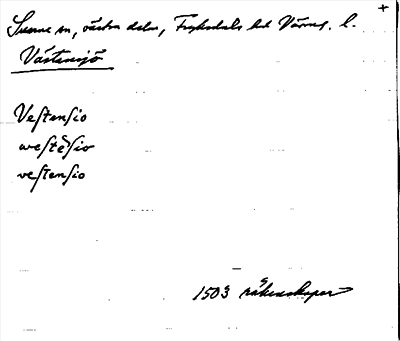 +
Sunne sn, västra delen, Fryksdals hd Värml. l.
Västansjö
Veſtenſio
weſtēſio
veſtenſio
1503 räkenskaper